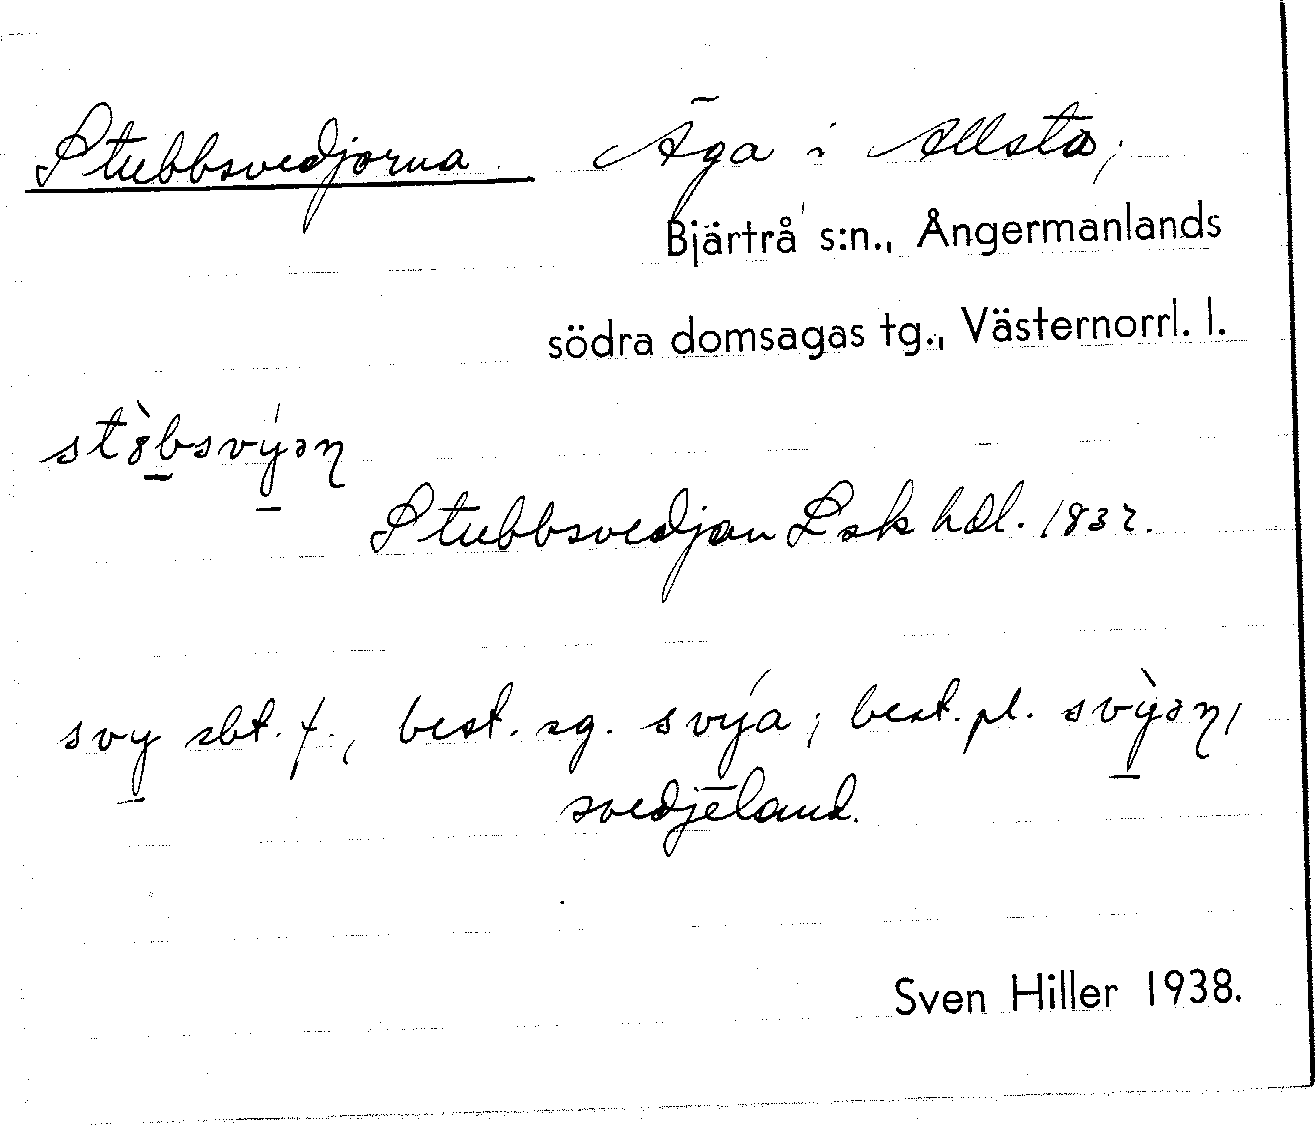 Stubbsvedjorna. Äga i Allsta,
Bjärtrå s:n., Ångermanlands
södra domsagas tg., Västernorrl. l.
stò̱bsvý̱ən
Stubbsvedjan Lsk hdl. 1832.
svy̱ sbt. f., best. sg. svýa, best. pl. svỳ̱ən,
svedjeland.
Sven Hiller 1938.